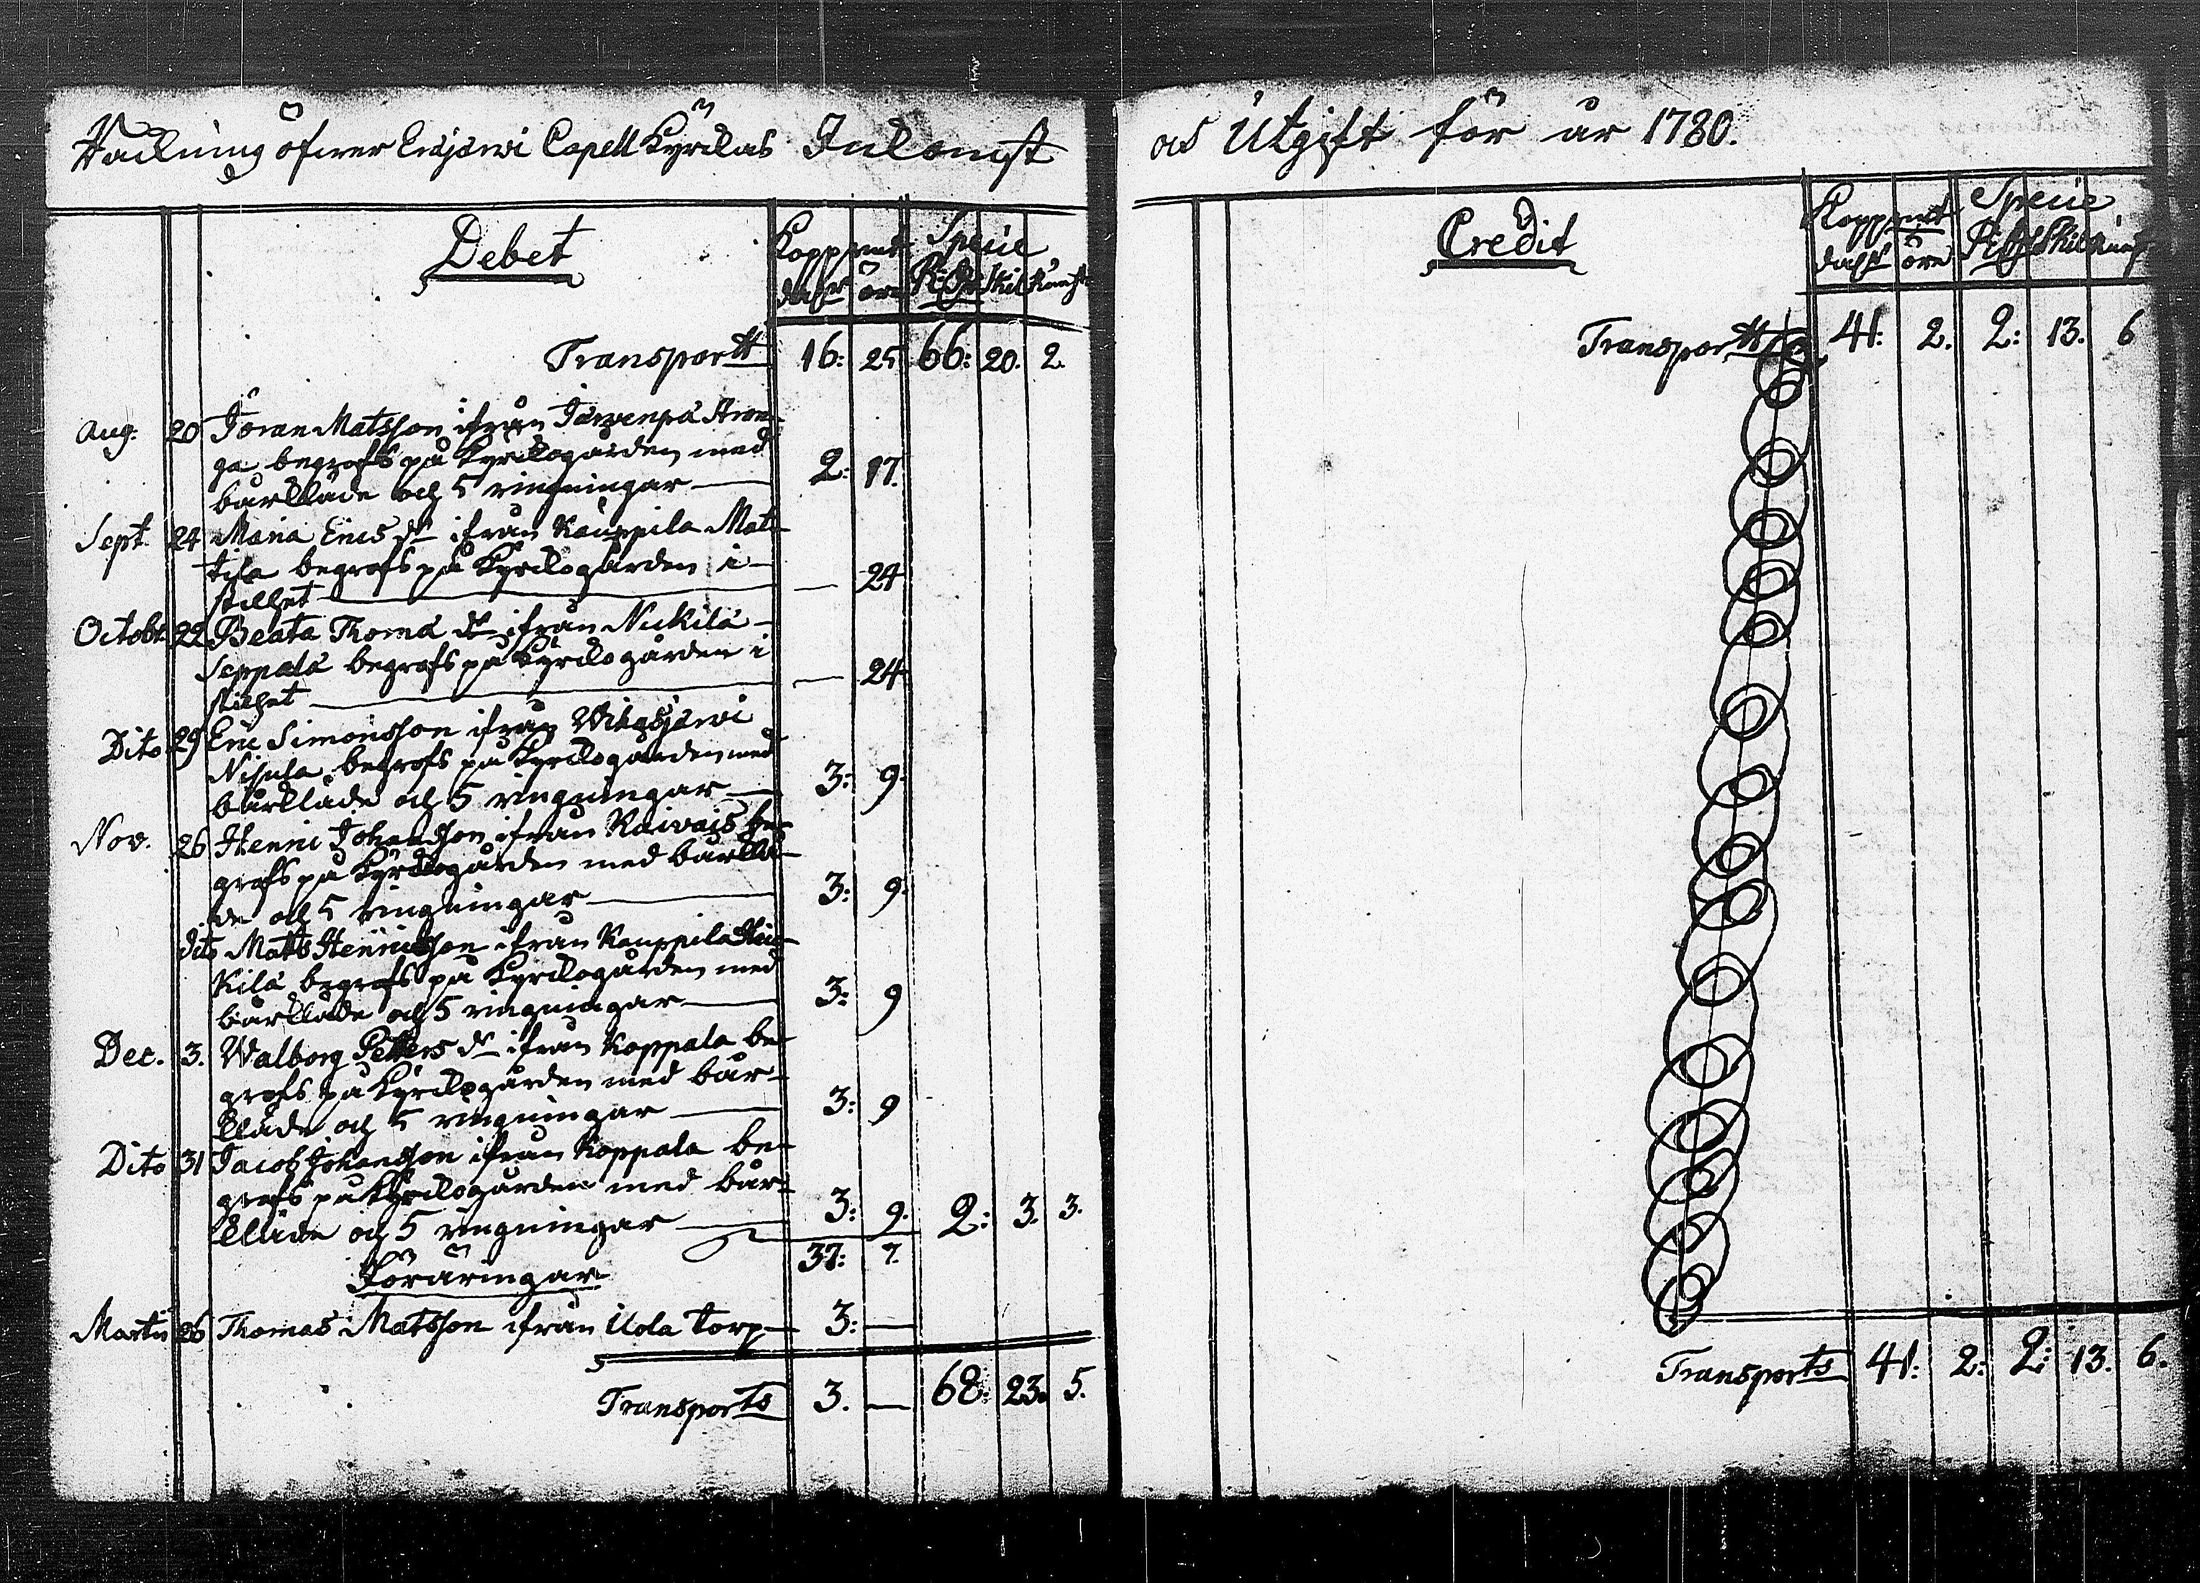 Räckning öfwer Ersjerwi Capell Kyrckas Inkomst
Debet
Kopparmt Specie
dalr öre Riksd Skil Runst
Transportt 16: 25 66: 20. 2.
Aug. 20 Jöran Matsson ifrån Järwenpä Aron-
ga begrofs på Kyrckogården med
bårkläde och 5 ringningar 2: 17.
Sept. 24 Maria Erics dr ifrån Kauppila Mat-
tila begrofs på Kyrckogården i
stillhet — 24
Octobr. 22 Beata Thoma dr ifrån Nickilä
Seppälä begrofs på Kyrckogården i
stillhet — 24
Dito 29 Eric Simonsson ifrån Wihajärwi
Nisula begrofs på Kyrckogården med
bårkläde och 5 ringningar 3: 9.
Nov. 26 Henric Johansson ifrån Raivais be-
grofs på Kyrckogården med bårklä-
de och 5 ringningar 3: 9.
dito Matts Henricsson ifrån Kauppila Hei-
kilä begrofs på Kyrckogården med
bårkläde och 5 ringningar 3: 9
Dec. 3. Walborg Petters dr ifrån Koppala be-
grofs på Kyrckogården med bår-
kläde och 5 ringningar 3: 9
Dito 31 Jacob Johansson ifrån Koppala be-
grofs på Kyrckogården med bår-
kläde och 5 ringningar 3: 9. 2: 3. 3.
37: 7.
Föräringar
Martii 26 Thomas Matsson ifrån Uola torp 3: —
Transports 3. — 68: 23. 5.
och Utgift för år 1780.
Credit
Kopparmt Specie
dalr öre Riksd Skil Runst
Transportt 41: 2. 2: 13. 6
Transports 41: 2: 2: 13. 6.